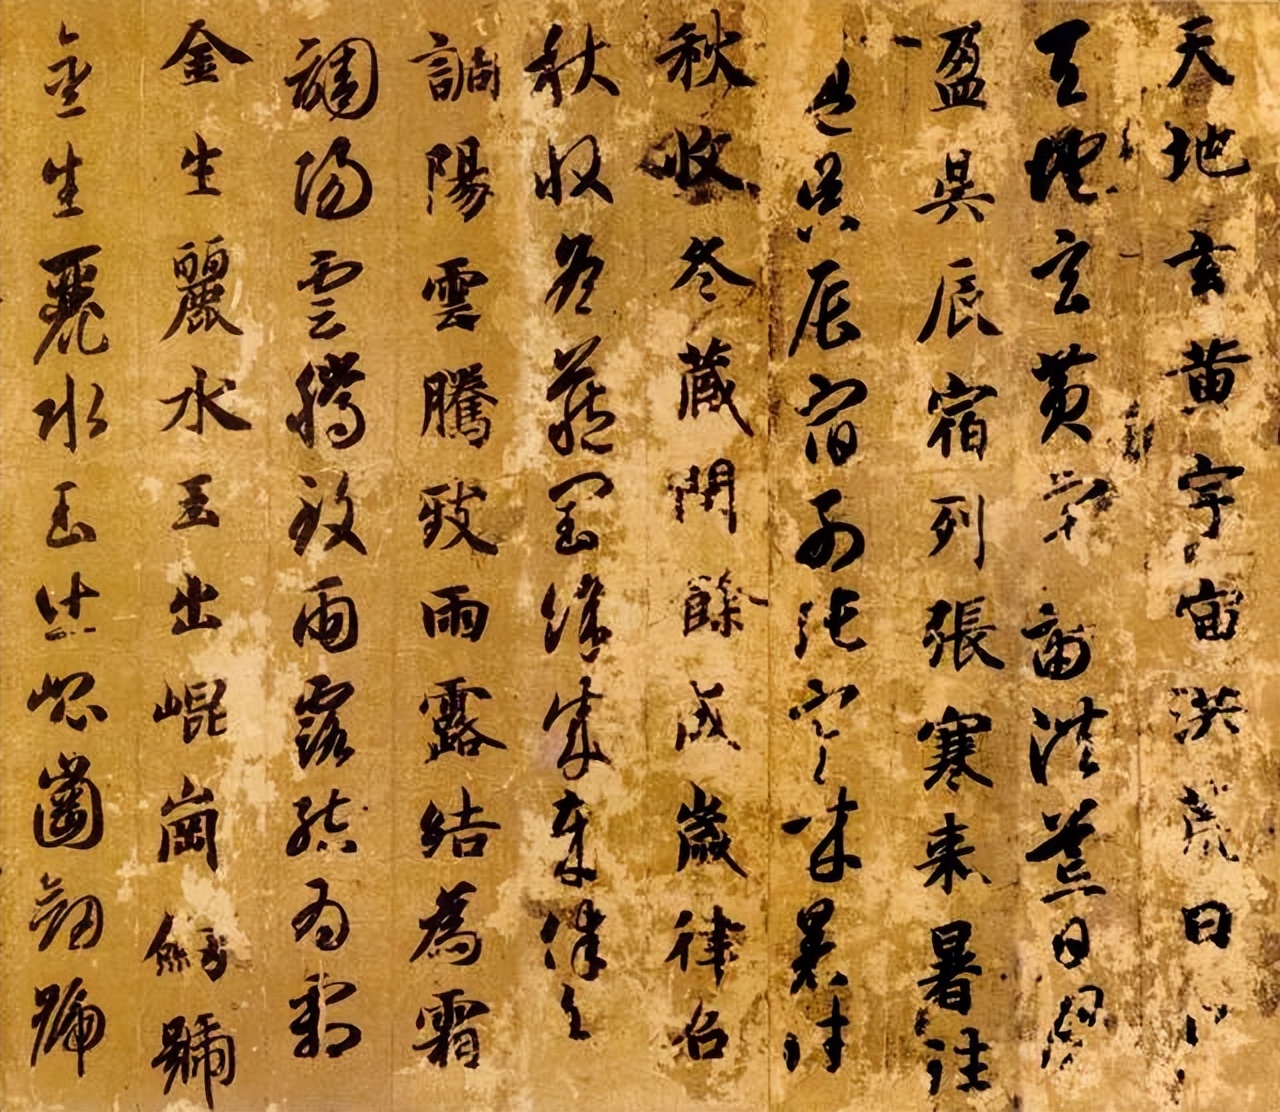 天地玄黄宇宙洪荒日
天地玄黄宇宙洪荒日月
盈昃辰宿列張寒来暑往
昃辰宿列張寒来暑往
秋收冬藏閏餘成歲律召
秋收冬藏閏餘成歲律召
調陽雲騰致雨露結為霜
調陽雲騰致雨露結為霜
金生麗水玉出崐崗劒號
金生麗水玉出崐崗劒號